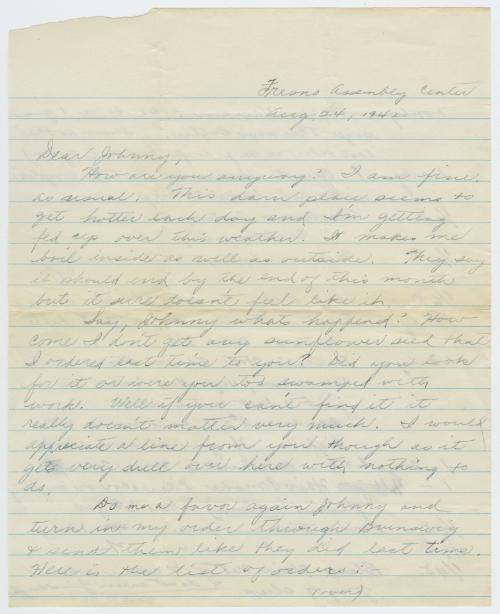 Fresno Assembly Center
Aug 24, 1942
Dear Johnny,
How are you anyway? I am fine
as usual. This darn place seems to
get hotter each day and I'm getting
fed up over this weather. It makes me
boil inside as well as outside. They say
it should end by the end of this month
but it sure doesn't feel like it.
Say, Johnny whats happened? How
come I don't get any sunflower seed that
I ordered last time to you? Did you look
for it or were you too swamped with
work. Well if you can't find it it
really doesn't matter very much. I would
appreciate a line from you though as it
gets very dull over here with nothing to
do.
Do me a favor again Johnny and
turn in my order through Brunswig
& send them like they did last time.
Here is the list of orders:
(over)